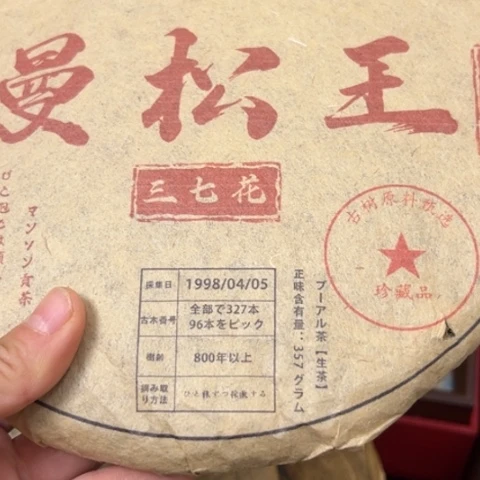 曼松王
三七花
古树原料甄选
珍藏品
マンソン貢茶
採集日 1998/04/05
古木番号 全部で327本
96本をピック
樹齢 800年以上
摘み取り方法 ひと株ずつ採集する
正味含有量：357グラム
プーアル茶【生茶】